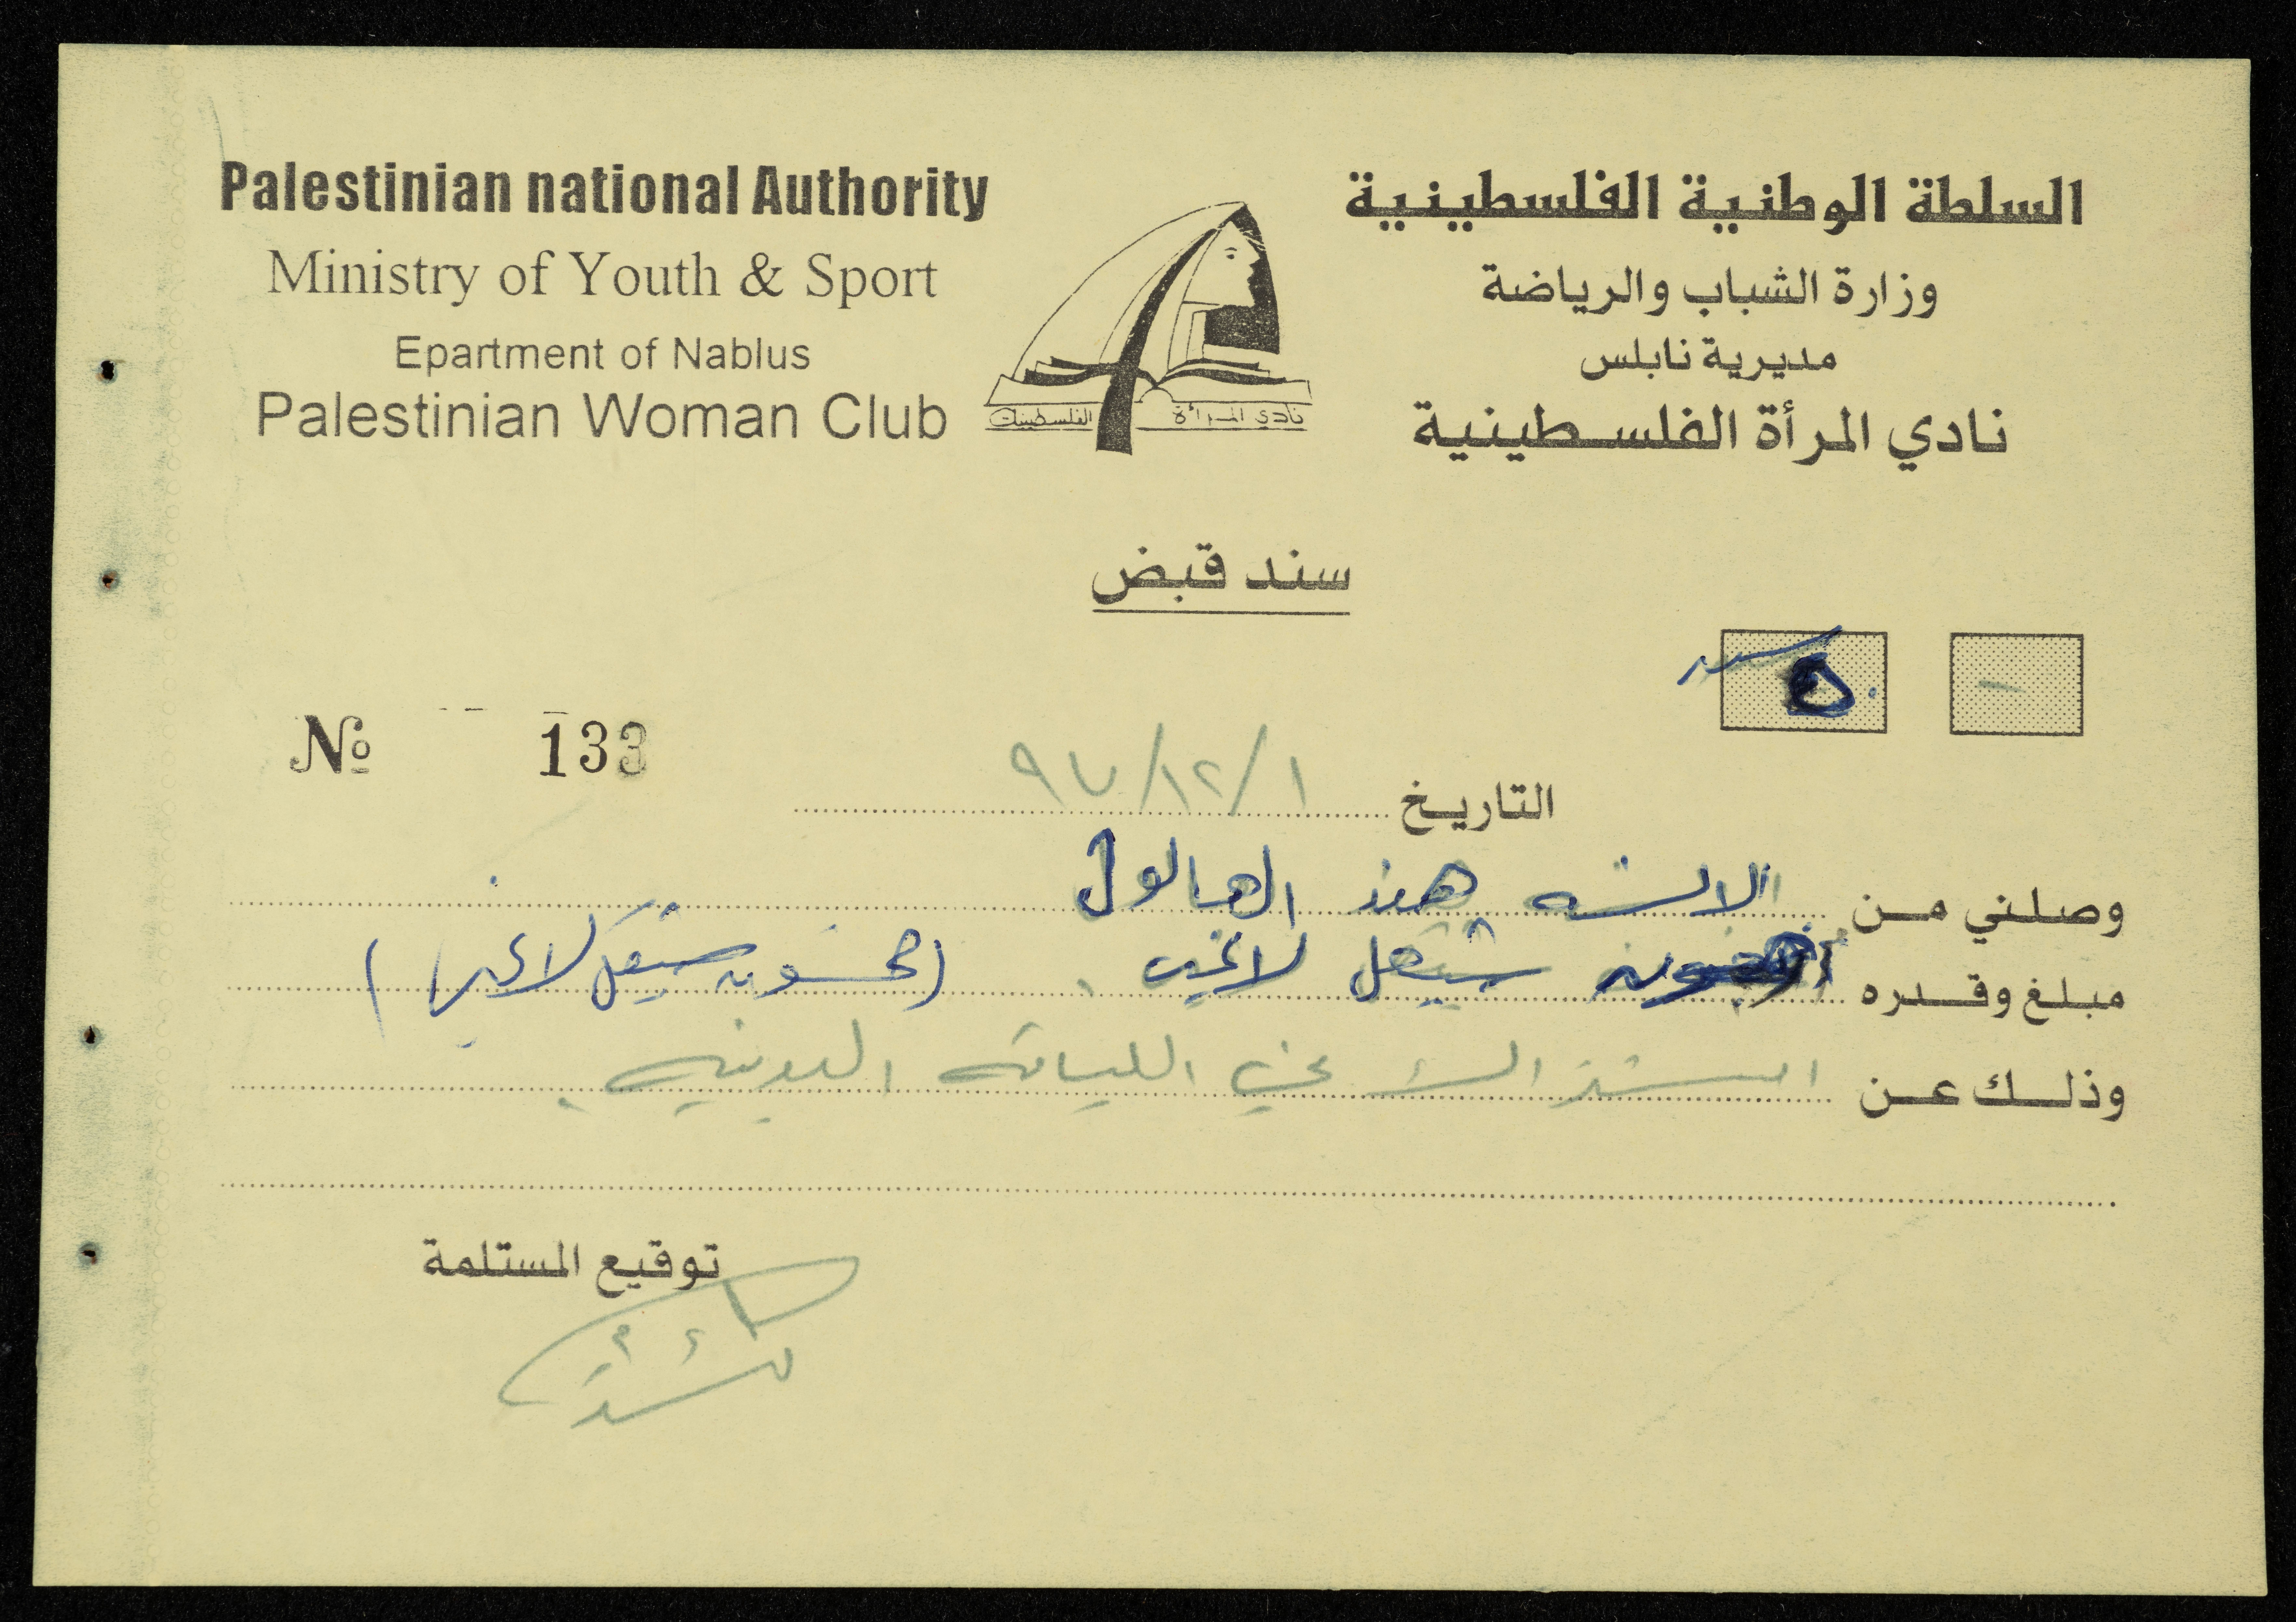 Palestinian national Authority
Ministry of Youth & Sport
Epartment of Nablus
Palestinian Woman Club
السلطة الوطنية الفلسطينية
وزارة الشباب والرياضة
مديرية نابلس
نادي المرأة الفلسطينية
نادي المرأة الفلسطينية
سند قبض
٥٠
№ 133
التاريخ ١/١٢/٩٧
وصلني من الانسه هند
مبلغ وقدره شيقل لاغير (خمسون شيقل لاغير)
وذلك عن اشتراك في اللياقه البدنيه
توقيع المستلمة